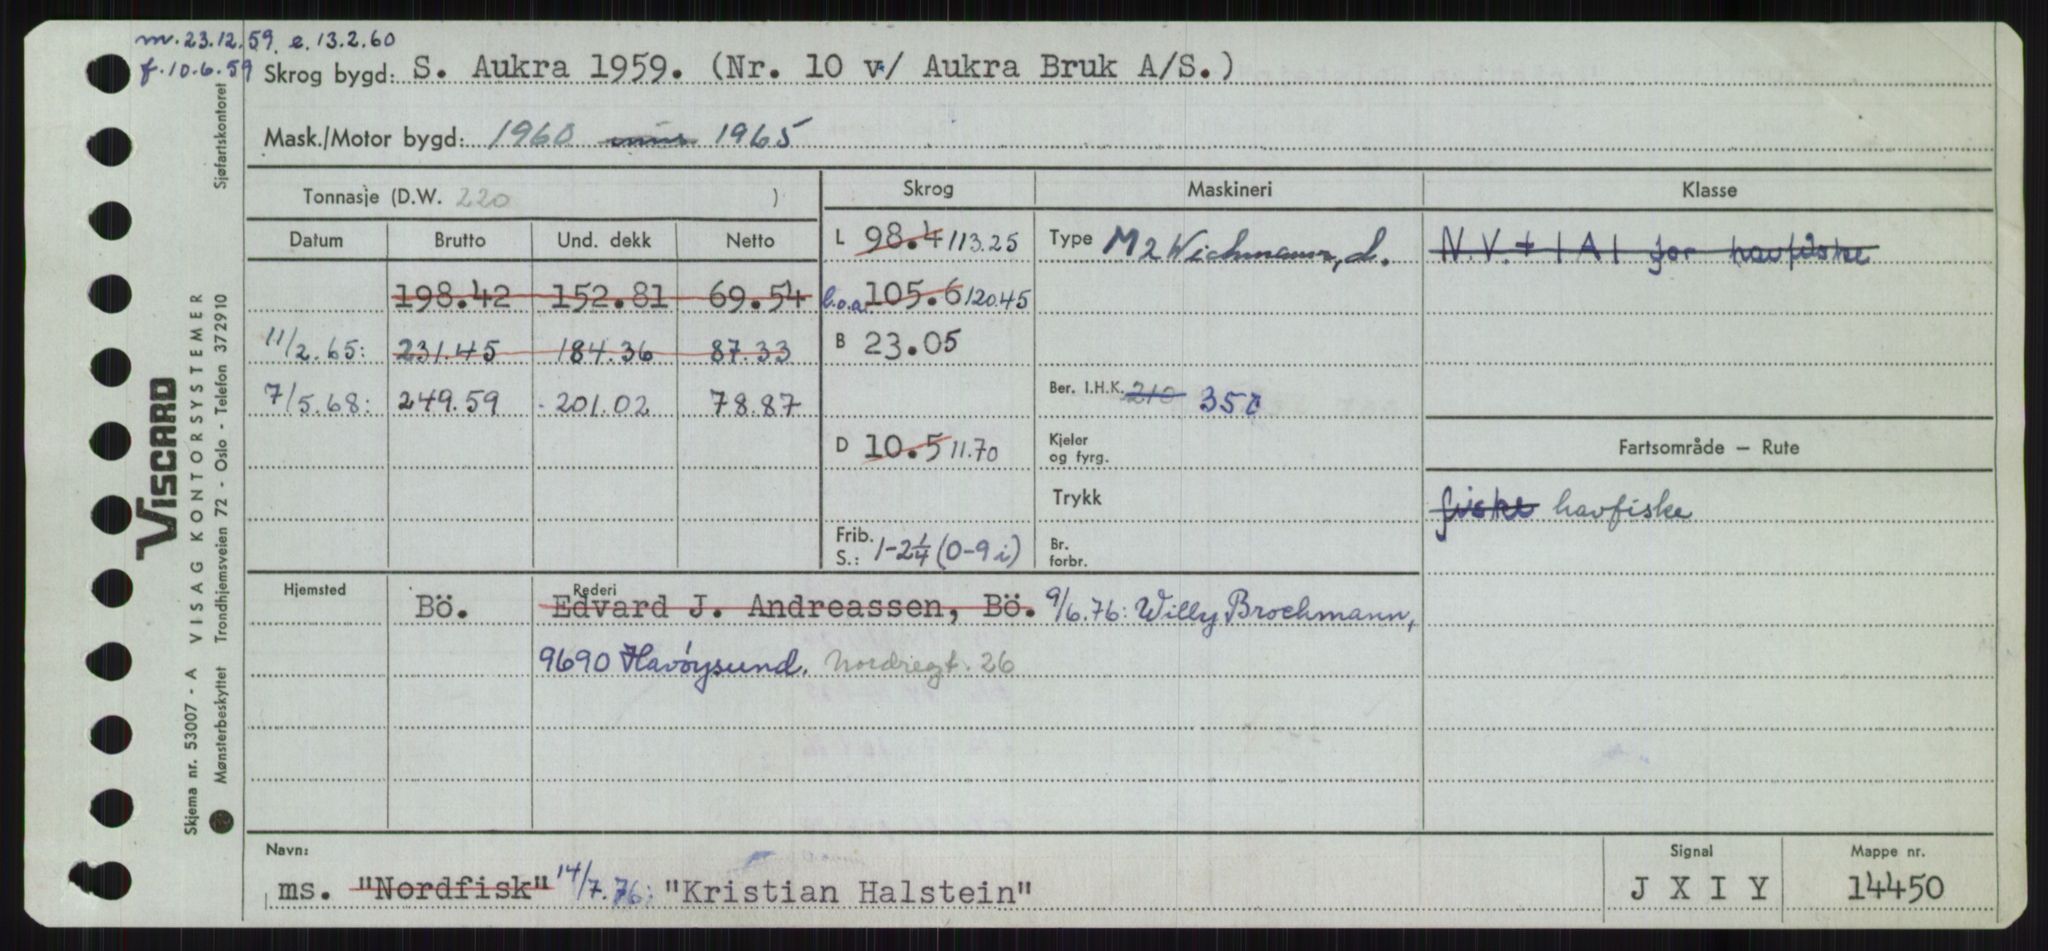 m. 23.12.59. e. 13.2.60
f. 10.6.59
Skrog bygd: S. Aukra 1959. (Nr. 10 v/ Aukra Bruk A/S.)
Mask./Motor bygd: 1960 1965
Tonnasje (D.W. 220 )
Skrog Maskineri Klasse
Datum Brutto Und. dekk Netto
L 98.4 113.25 Type M2 Wichmann, d. N.V. + 1A1 for havfiske
198.42 152.81 69.54 l.o.a. 105.6 120.45
11/2.65: 231.45 184.36 87.33 B 23.05
7/5.68: 249.59 201.02 78.87 Ber. I.H.K. 210 350
D 10.5 11.70 Kjeler og fyrg. Fartsområde – Rute
Trykk fiske havfiske
Frib. S.: 1-2¼ (0-9 i) Br. forbr.
Hjemsted Rederi
Bö. Edvard J. Andreassen, Bö. 9/6.76: Willy Brochmann,
9690 Havøysund. Nordregt. 26
Navn: Signal Mappe nr.
ms. "Nordfisk" 14/7.76: "Kristian Halstein" J X I Y 14450
Skjema nr. 53007 - A VISAG KONTORSYSTEMER
VISCARD
Mønsterbeskyttet Trondhjemsveien 72 - Oslo - Telefon 372910 Sjøfartskontoret